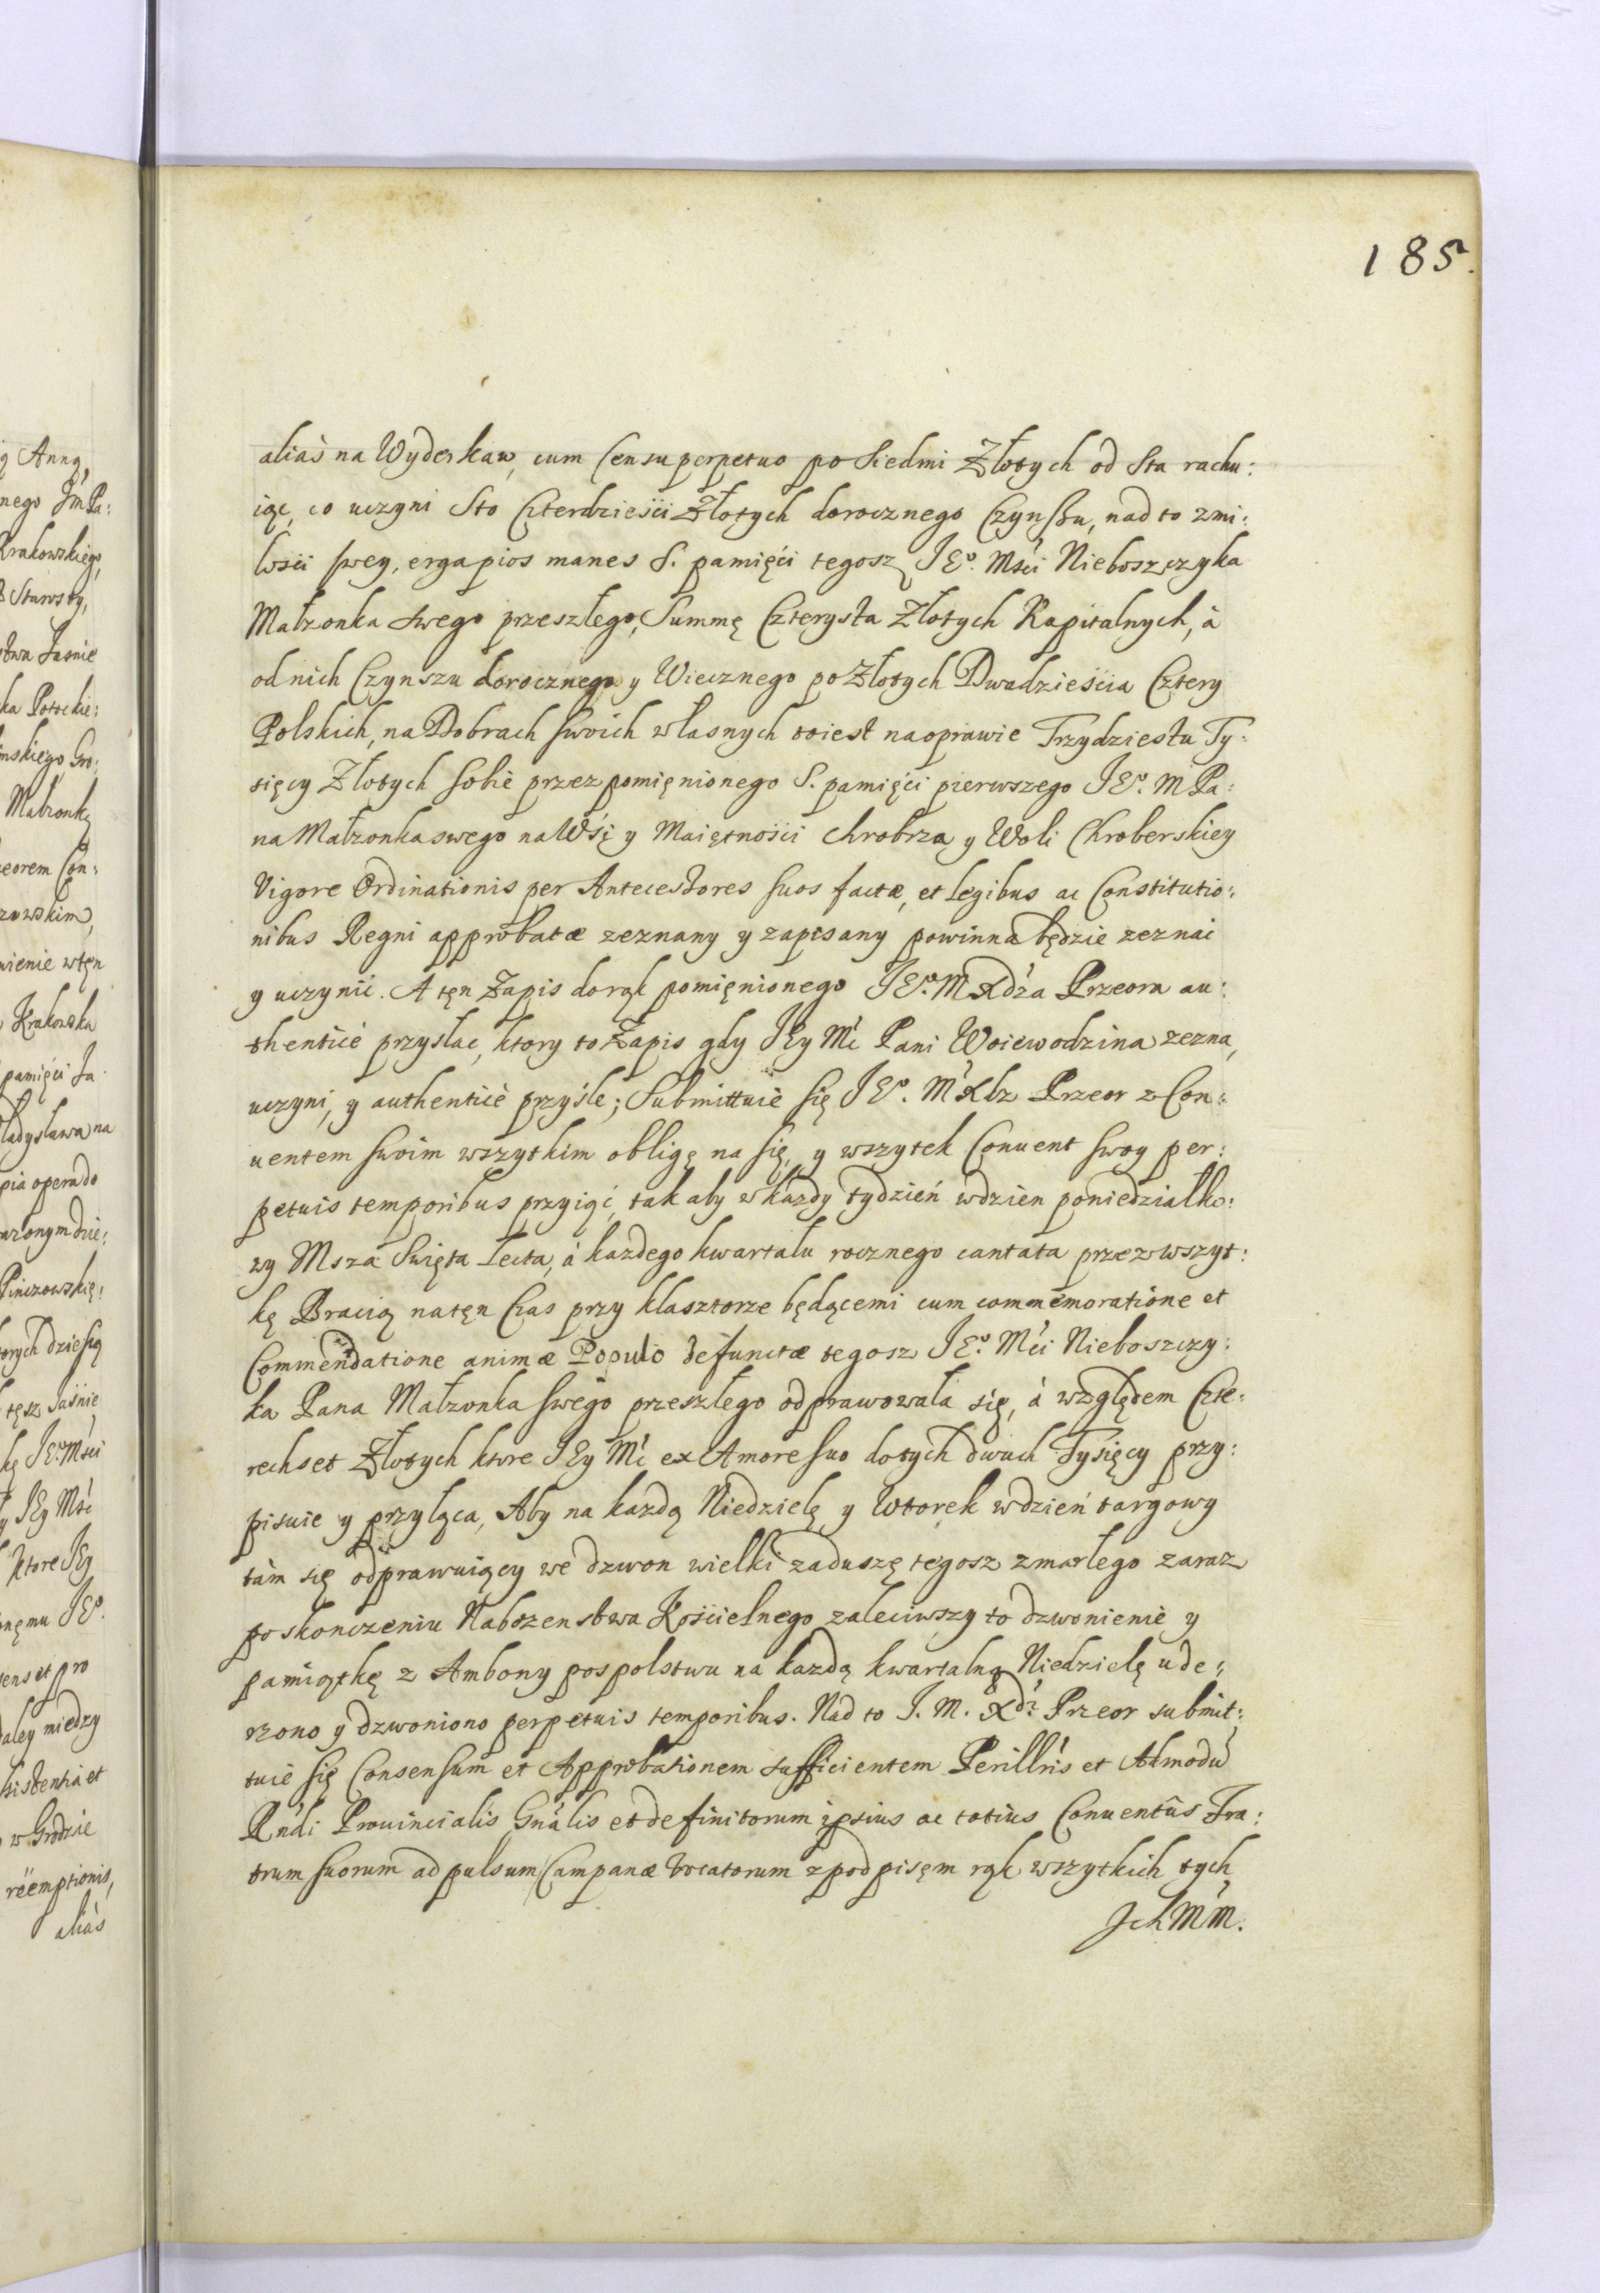 185.
alias na Wyderkaw, cum Censu perpetuo po Siedmi Złotych od Sta rachu:
iąc, co uczyni Sto Czterdzieści Złotych dorocznego Czynszu, nad to z mi:
łości swey, erga pios manes S. pamięci tegosz JEo. Mści Nieboszczyka
Małzonka swego przeszłego, Summę Czterysta Złotych Kapitalnych, à
od nich Czynszu dorocznego y Wiecznego po Złotych Dwadzieścia Cztery
Polskich, na Dobrach swoich własnych to iest na oprawie Trzydziestu Ty:
sięcy Złotych sobie przez pomięnionego S. pamięci pierwszego JEo. M Pa:
na Małzonka swego na Wśi y Maiętności Chrobrza y Woli Chroberskiey
Vigore Ordinationis per Antecessores suos factæ, et legibus ac Constitutio:
nibus Regni approbatæ zeznany y zapisany powinna będzie zeznać
y uczynić. A tęn Zapis do rąk pomięnionego JEo. M Xdza Przeora au:
thenticè przysłac, ktory to Zapis gdy JEy Mć Pani Woiewodzina zezna,
uczyni, y authenticè przyśle; Submittuie się JEo. M Xdz Przeor z Con:
uentem swoim wszytkim obligę na się, y wszytek Conuent swoy per:
petuis temporibus przyiąć, tak aby w kazdy tydzień w dzien poniedziałko:
wy Msza Swięta Lecta, à kazdego kwartału rocznego cantata przez wszyt:
kę Bracią na tęn Czas przy klasztorze będącemi cum commemoratione et
Commendatione animæ Populo defunctæ tegosz JEo. Mći Nieboszczy:
ka Pana Małzonka swego przeszłego odprawowała się, à względem Czte:
rechset Złotych ktore JEy Mć ex Amore suo do tych dwuch Tysięcy przy:
pisuie y przyłąca, Aby na kazdą Niedzielę y Wtorek w dzień targowy
tam się odprawuiący we dzwon wielki za duszę tegosz zmarłego zaraz
po skonczeniu Nabozenstwa Kościelnego zaleciwszy to dzwonienie y
pamiątkę z Ambony pospolstwu na kazdą kwartalną Niedzielę ude:
rzono y dzwoniono perpetuis temporibus. Nad to J. M. Xdz Przeor submit:
tuie się Consensum et Approbationem sufficientem Perillris et Admodũ
Rndi Prouincialis Gnalis et definitorum ipsius ac totius Conuentûs Fra:
trum suorum ad pulsum Campanæ Vocatorum z podpisęm rąk wszytkich tych
Jch Mm.